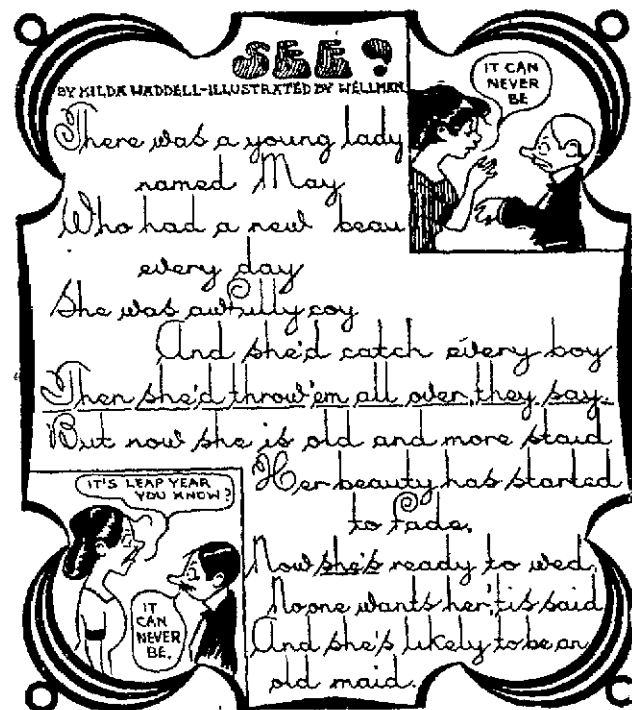 SEE?
BY HILDA WADDELL-ILLUSTRATED BY WELLMAN
IT CAN
NEVER
BE
There was a young lady
named May
Who had a new beau
every day
She was awfully coy
And she'd catch every boy
Then she'd throw 'em all over, they say.
But now she is old and more staid
Her beauty has started
to fade.
Now she's ready to wed.
No one wants her, 'tis said
And she's likely to be an
old maid.
IT'S LEAP YEAR
YOU KNOW?
IT
CAN
NEVER
BE.